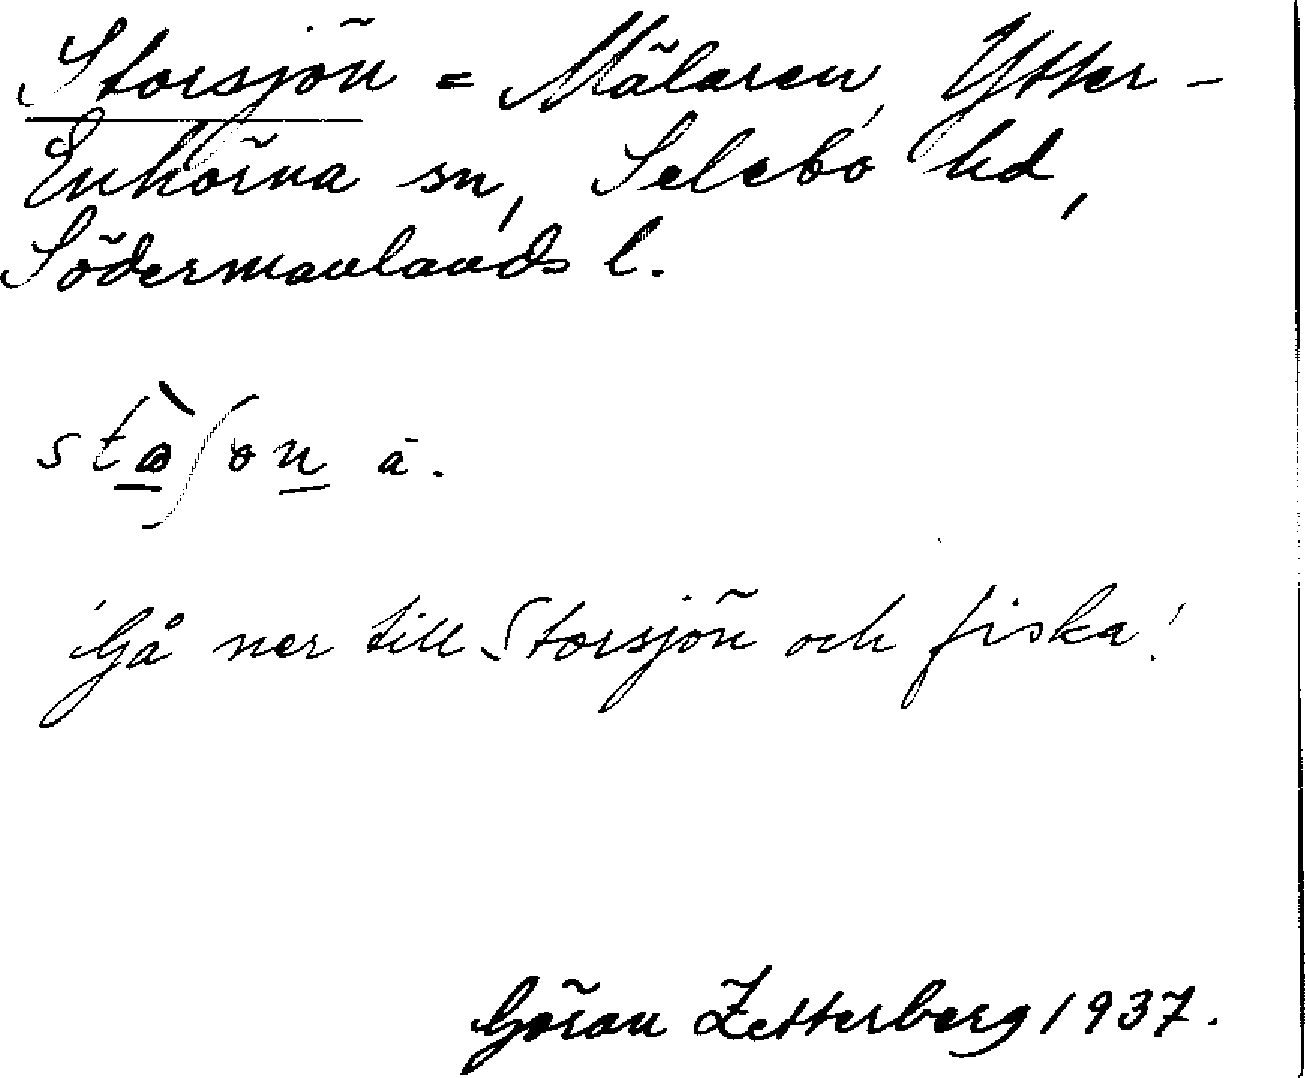 Storsjön = Mälaren, Ytter-
Enhörna sn, Selebo hd,
Södermanlands l.
ā.
'Gå ner till Storsjön och fiska!'
Göran Zetterberg 1937.